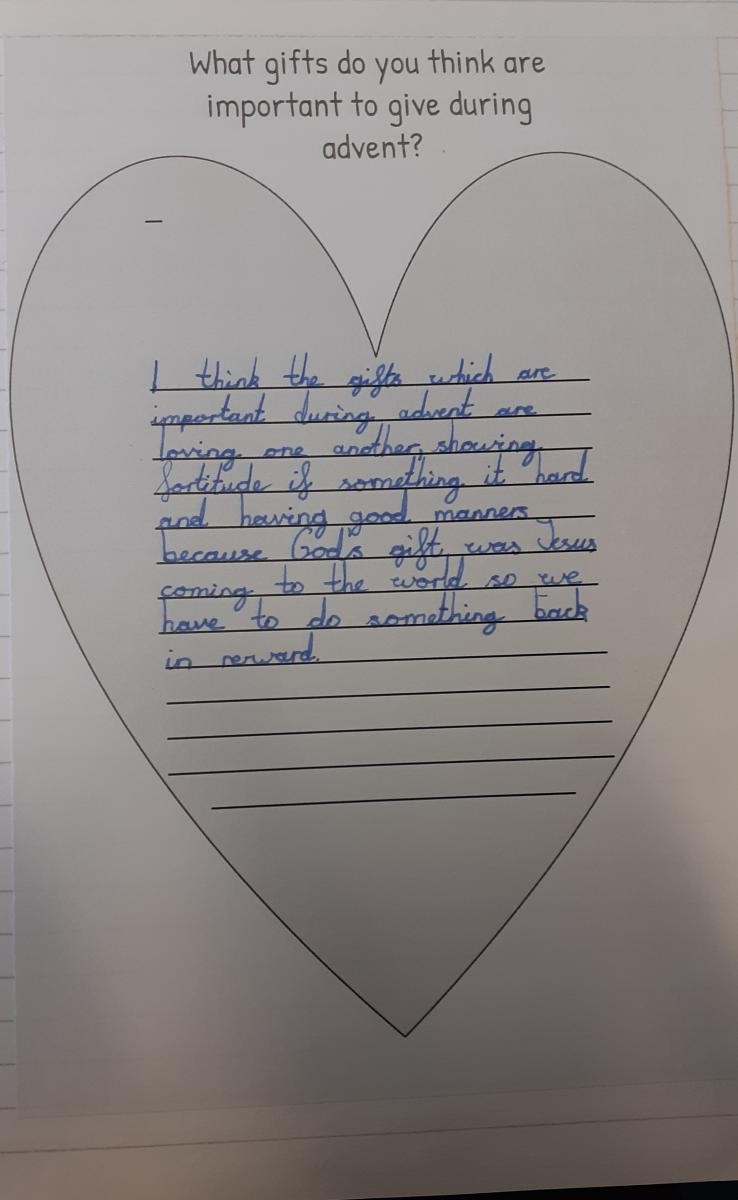 What gifts do you think are
important to give during
advent?
I think the gifts which are
important during advent are
loving one another, showing
fortitude if something it hard
and having good manners
because God's gift was Jesus
coming to the world so we
have to do something back
in reward.